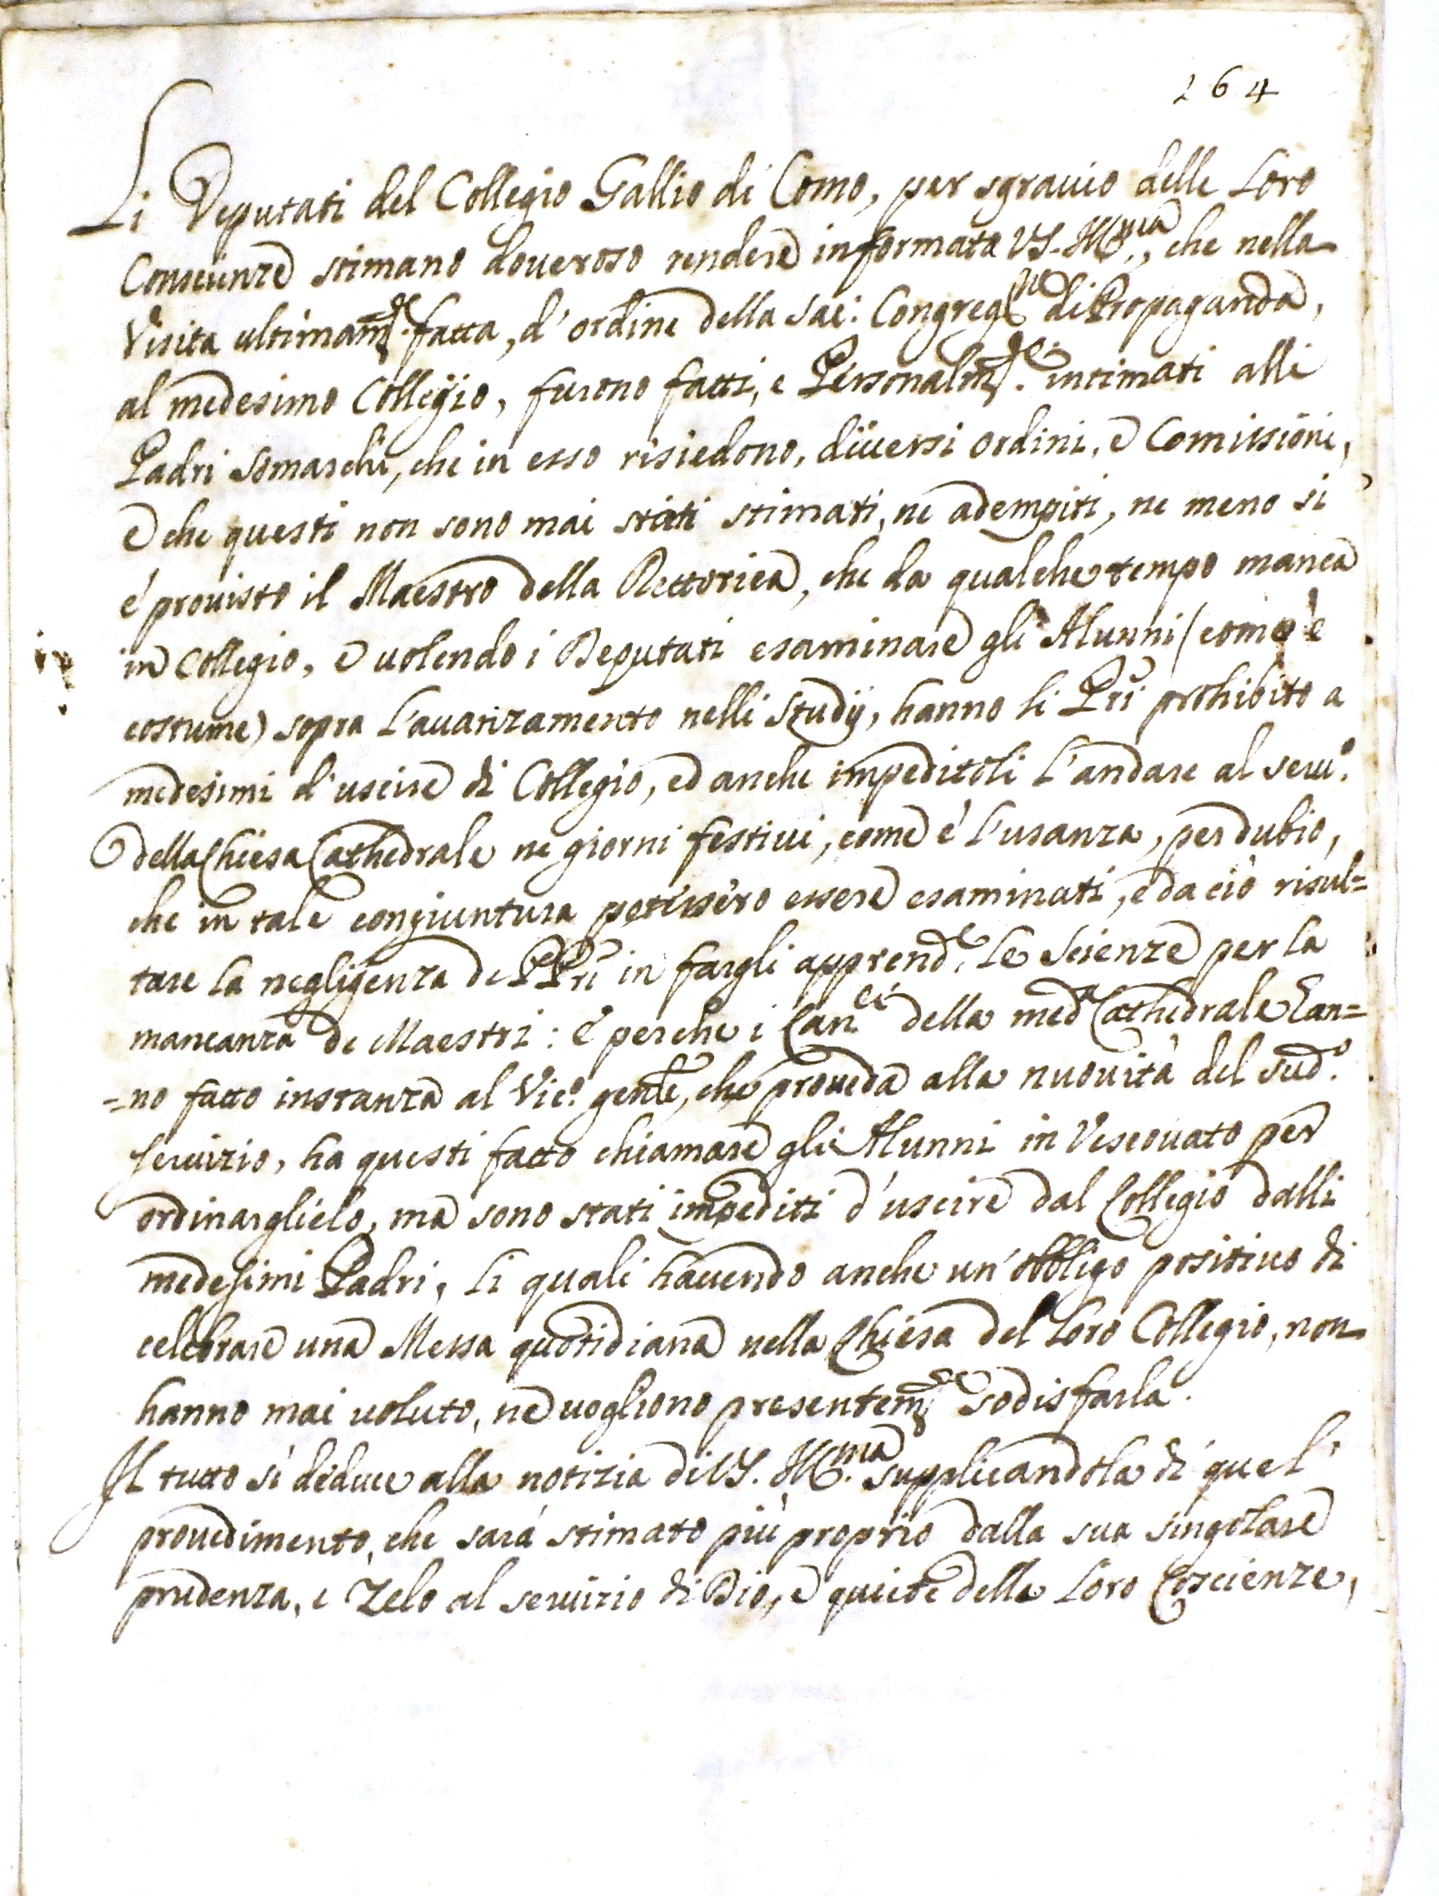 264
Li Deputati del Collegio Gallio di Como, per sgravio delle Loro
Conscienze stimano doveroso rendere informata VS. Ill.ma, che nella
Visita ultimam.te fatta, d'ordine della Sac: Congreg.ne di Propaganda,
al medesimo Collegio, furono fatti, e Personalm.te intimati alli
Padri Somaschi, che in esso risiedono, diversi ordini, e Comissioni,
e che questi non sono mai stati stimati, ne adempiti, ne meno si
é provisto il Maestro della Rettorica, che da qualche tempo manca
in Collegio, e volendo i Deputati esaminare gli Alunni (com'è
costume) sopra l'avanzamento nelli Studij, hanno li Pri prohibito a
medesimi d'uscire di Collegio, ed anche impeditoli l'andare al serv.o
della Chiesa Cathedrale ne giorni festivi, come é l'usanza, per dubio,
che in tale congiuntura potessero essere esaminati, e da ciò risul=
tare la negligenza de PPri in fargli apprend.e le Scienze per la
mancanza de Maestri: E perche i Can.ci della med.a Cathedrale han=
=no fatto instanza al Vic.o gen.le, che proveda alla nuovità del sud.o
servizio, ha questi fatto chiamare gli Alunni in Vescovato per
ordinarglielo, ma sono stati impediti d'uscire dal Collegio dalli
medesimi Padri, li quali havendo anche un'obbligo positivo di
celebrare una Messa quotidiana nella Chiesa del loro Collegio, non
hanno mai voluto, ne vogliono presentem.te sodisfarla.
Il tutto si deduce alla notizia di VS. Ill.ma supplicandola di quel
provedimento, che sará stimato più proprio dalla sua singolare
prudenza, e Zelo al servizio di Dio, e quiete delle Loro Coscienze,